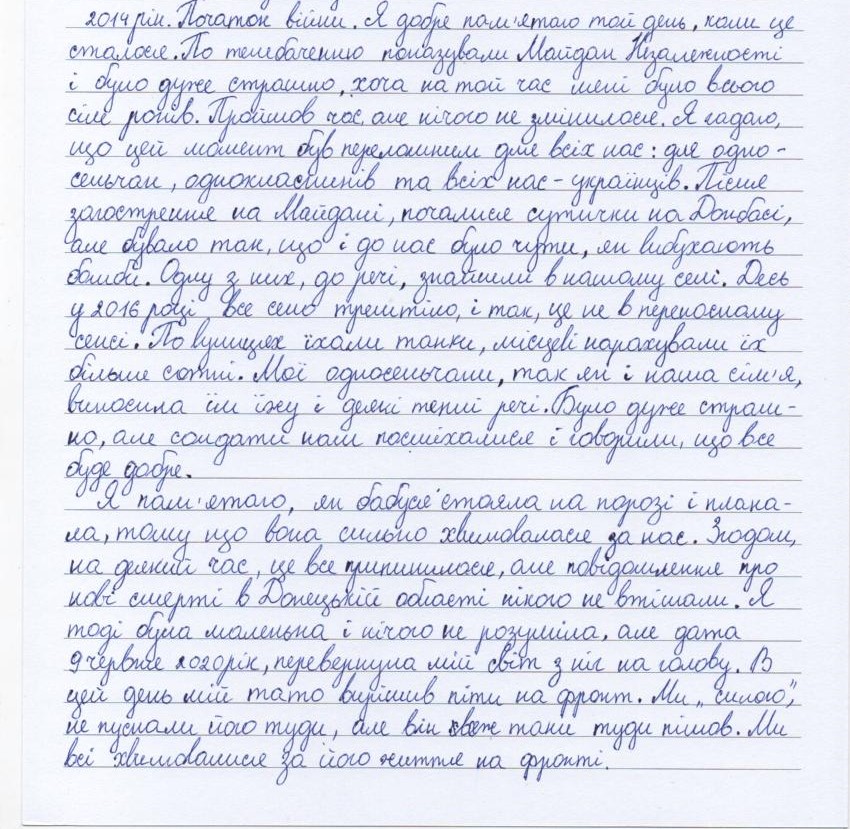 2014 рік. Початок війни. Я добре пам'ятаю той день, коли це
сталося. По телебаченню показували Майдан Незалежності
і було дуже страшно, хоча на той час мені було всього
сім років. Пройшов час, але нічого не змінилося. Я гадаю,
що цей момент був переломним для всіх нас: для одно-
сельчан, однокласників та всіх нас - українців. Після
загострення на Майдані, почалися сутички на Донбасі,
але бувало так, що і до нас було чути, як вибухають
бомби. Одну з них, до речі, знайшли в нашому селі. Десь
у 2016 році, все село трештіло, і так, це не в переносному
сенсі. По вулицях їхали танки, місцеві нарахували їх
більше сотні. Мої односельчани, так як і наша сім'я,
виносила їм їжу і деякі теплі речі. Було дуже страш-
но, але солдати нам посміхалися і говорили, що все
буде добре.
Я пам'ятаю, як бабуся стояла на порозі і плака-
ла, тому що вона сильно хвилювалася за нас. Згодом,
на деякий час, це все припинилося, але повідомлення про
нові смерті в Донецькій області нікого не втішали. Я
тоді була маленька і нічого не розуміла, але дата
9 червня 2020 рік, перевернула мій світ з ніг на голову. В
цей день мій тато вирішив піти на фронт. Ми „силою",
не пускали його туди, але він все таки туди пішов. Ми
всі хвилювалися за його життя на фронті.